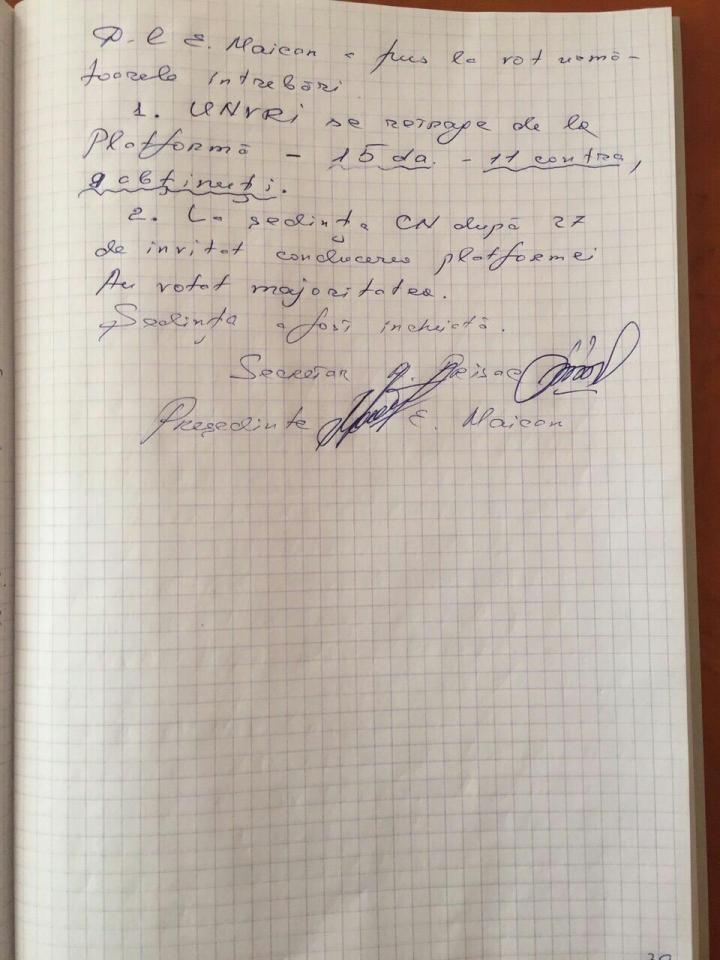 D-l E. Maican a pus la rot urmă-
toarele întrebări
1. UNVRI se retrage de la
Platformă - 15 da. - 11 contra,
9 abținuți.
2. La ședința CN după 27
de invitat conducerea platformei
Au votat majoritatea.
Ședința a fost încheiată.
Secretar
Președinte E. Maican